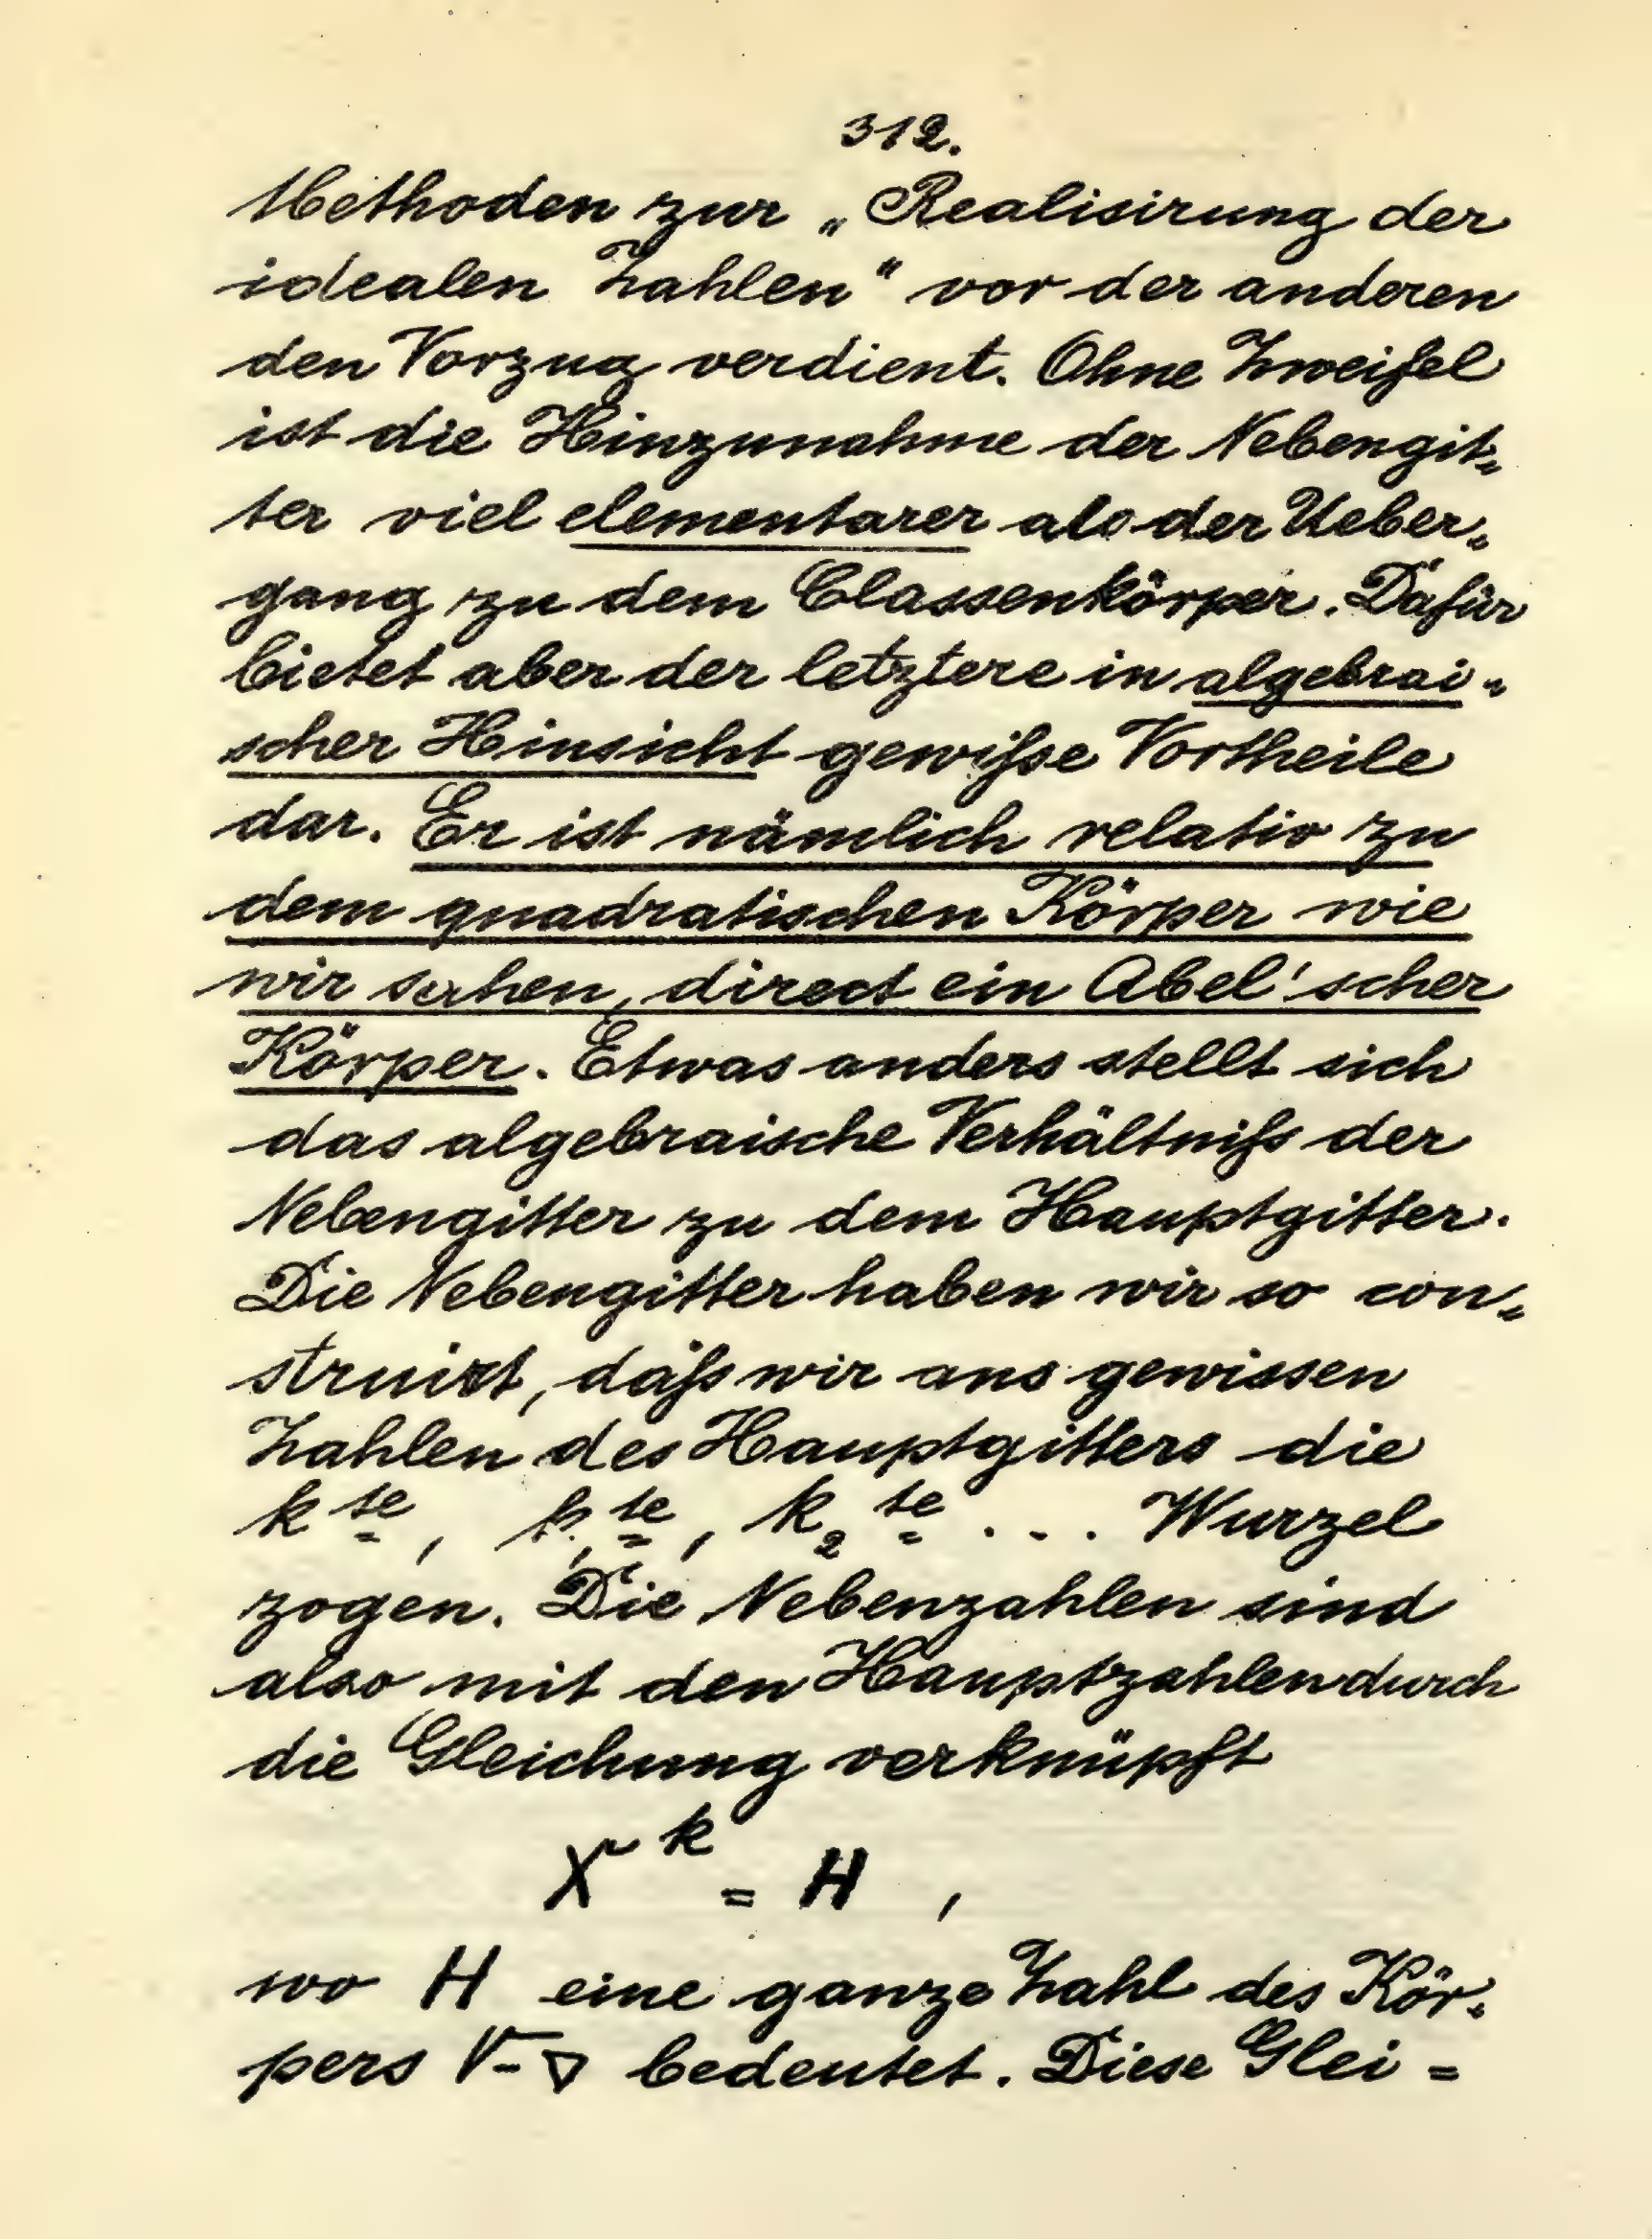 312.
Methoden zur „Realisirung der
idealen Zahlen" vor der anderen
den Vorzug verdient. Ohne Zweifel
ist die Hinzunahme der Nebengit=
ter viel elementarer als der Ueber=
gang zu dem Classenkörper. Dafür
bietet aber der letztere in algebrai=
scher Hinsicht gewiſse Vortheile
dar. Er ist nämlich relativ zu
dem quadratischen Körper wie
wir sahen, direct ein Abel'scher
Körper. Etwas anders stellt sich
das algebraische Verhältniſs der
Nebengitter zu dem Hauptgitter.
Die Nebengitter haben wir so con=
struirt, daſs wir aus gewissen
Zahlen des Hauptgitters die
k te, k₁ te, k₂ te . . . Wurzel
zogen. Die Nebenzahlen sind
also mit den Hauptzahlen durch
die Gleichung verknüpft
X^k = H ,
wo H eine ganze Zahl des Kör=
pers √-∇ bedeutet. Diese Glei=